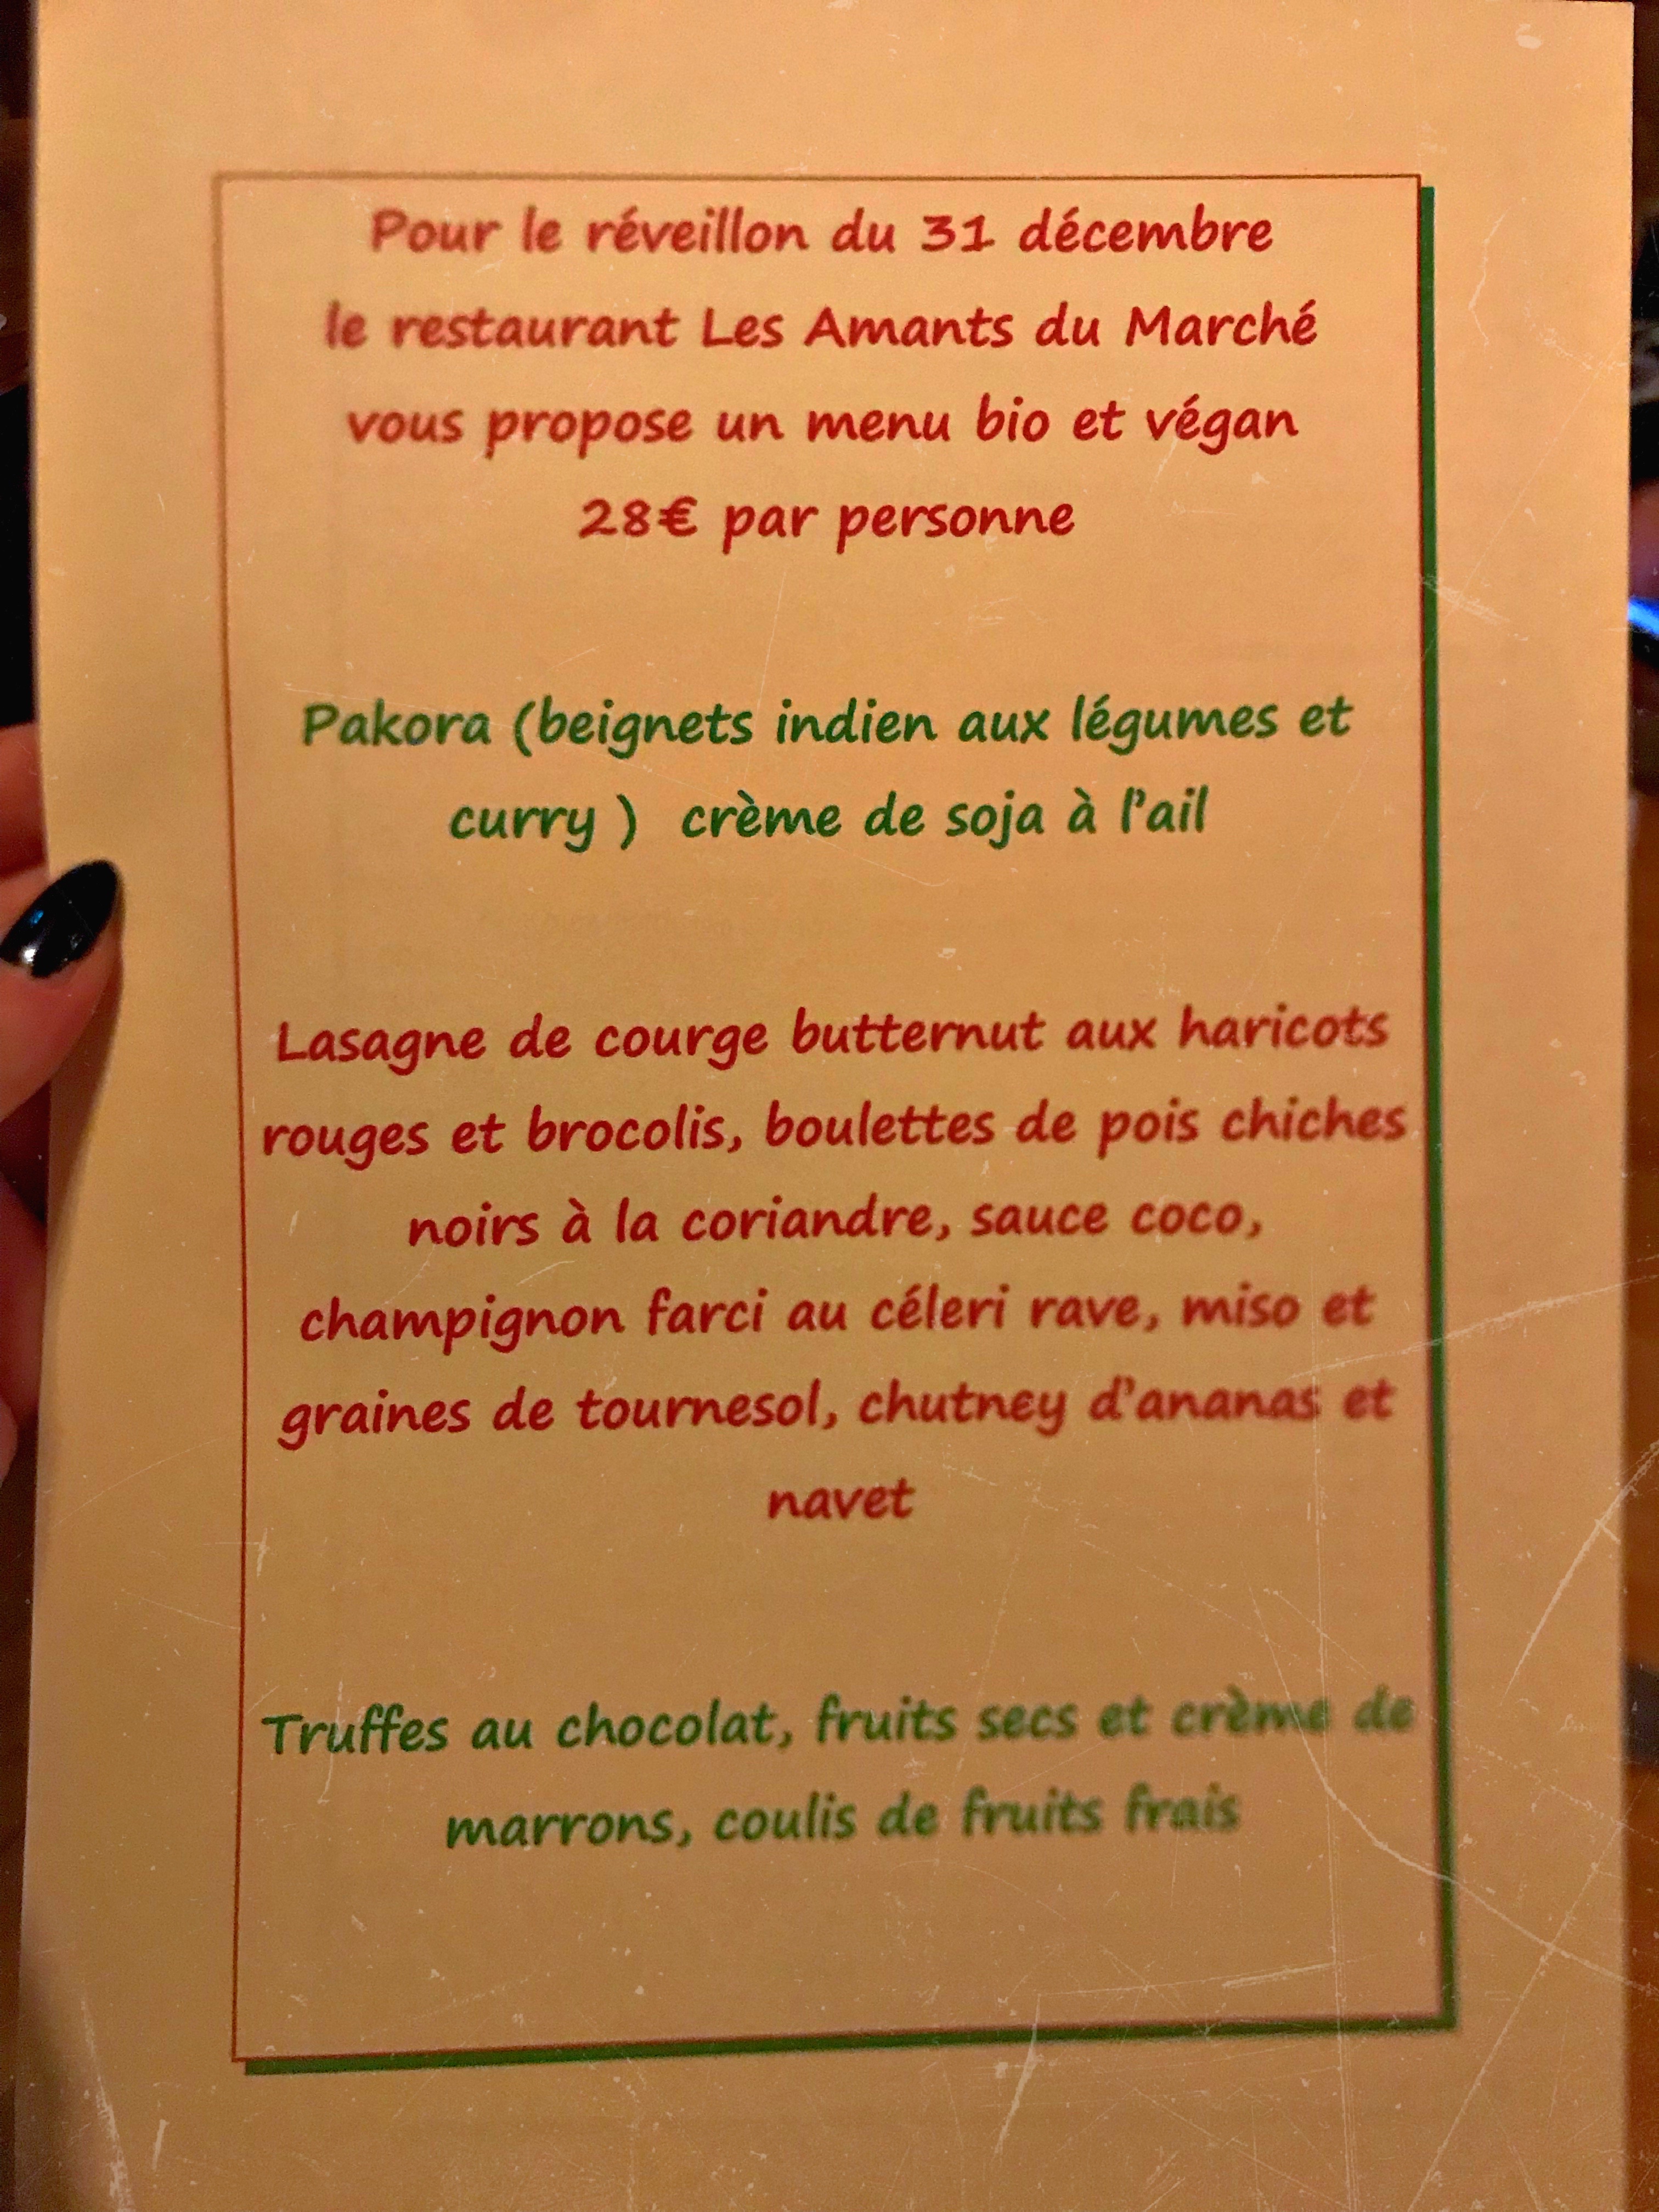 Pour le réveillon du 31 décembre
le restaurant Les Amants du Marché
vous propose un menu bio et végan
28€ par personne
Pakora (beignets indien aux légumes et
curry ) crème de soja à l'ail
Lasagne de courge butternut aux haricots
rouges et brocolis, boulettes de pois chiches
noirs à la coriandre, sauce coco,
champignon farci au céleri rave, miso et
graines de tournesol, chutney d'ananas et
navet
Truffes au chocolat, fruits secs et crème de
marrons, coulis de fruits frais